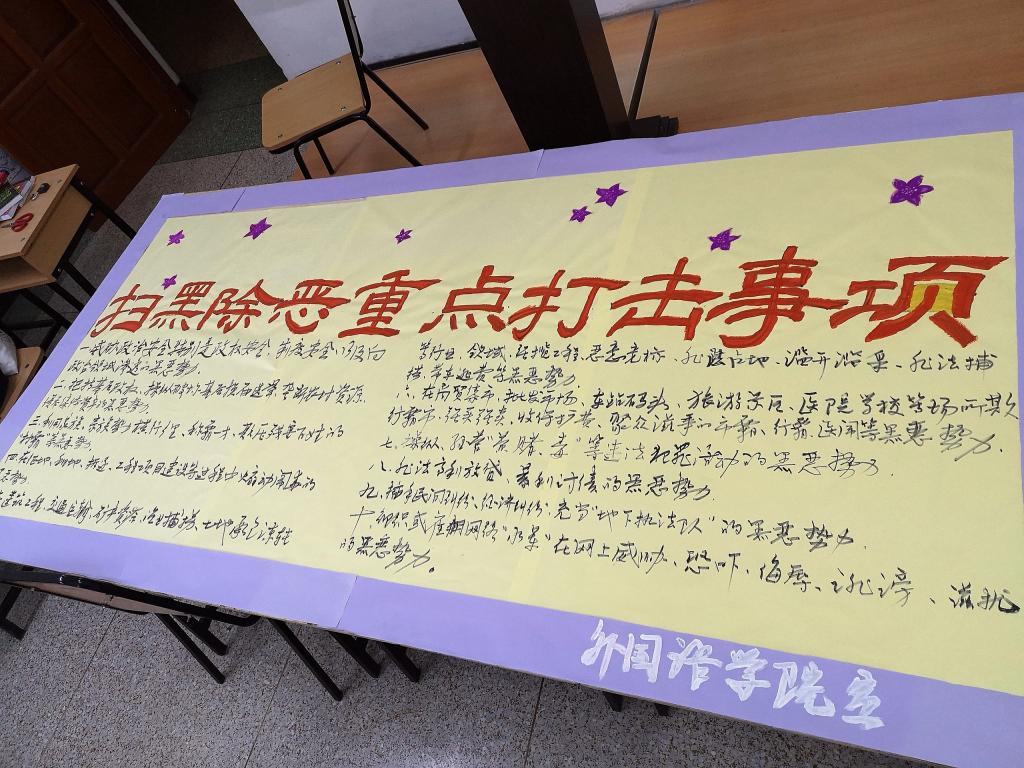 扫黑除恶重点打击事项
一、威胁政治安全特别是政权安全、制度安全以及向
政治领域渗透的黑恶势力
二、把持基层政权、操纵破坏基层换届选举、垄断农村资源
的黑恶势力
三、利用家族、宗族势力横行乡里、称霸一方、欺压残害百姓的
"村霸"等黑恶势力
四、在征地、租地、拆迁、工程项目建设等过程中煽动闹事的
黑恶势力
建筑工程、交通运输、矿产资源、渔业捕捞、土地承包流转
等行业、领域、强揽工程、恶意竞标、非法占地、滥开滥采、非法捕
捞、寻衅滋事等黑恶势力
六、在商贸集市、批发市场、车站码头、旅游景区、医院学校等场所欺
行霸市、强买强卖、收保护费、聚众滋事的市霸、行霸、医闹等黑恶势力
七、操纵、经营"黄赌、毒"等违法犯罪活动的黑恶势力
八、非法高利放贷、暴利讨债的黑恶势力
九、插手民间纠纷、经济纠纷、充当"地下执法队"的黑恶势力
十、组织或雇佣网络"水军"在网上威胁、恐吓、侮辱、诽谤、滋扰
的黑恶势力。
外国语学院宣